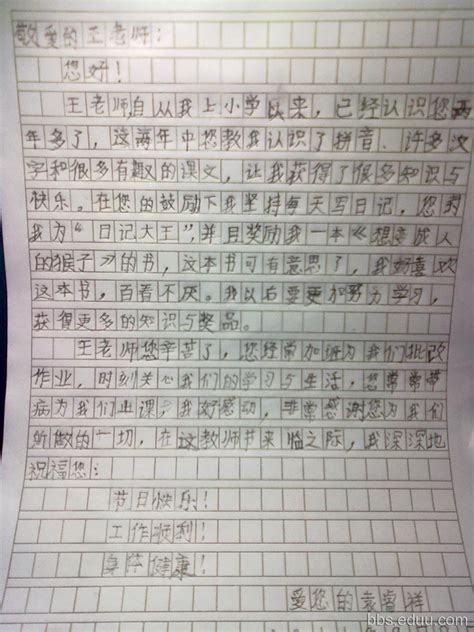 敬爱的王老师：
您好！
王老师自从我上小学以来，已经认识您两
年多了，这两年中您教我认识了拼音、许多汉
字和很多有趣的课文，让我获得了很多知识与
快乐。在您的鼓励下我坚持每天写日记，您封
我为“日记大王”，并且奖励我一本《想变成人
的猴子》的书，这本书可有意思了，我好喜欢
这本书，百看不厌。我以后要更加努力学习，
获得更多的知识与奖品。
王老师您辛苦了，您经常加班为我们批改
作业，时刻关心我们的学习与生活，您常常带
病为我们上课，我好感动，非常感谢您为我们
所做的一切，在这教师节来临之际，我深深地
祝福您：
节日快乐！
工作顺利！
身体健康！
爱您的袁睿祥
bbs.eduu.com